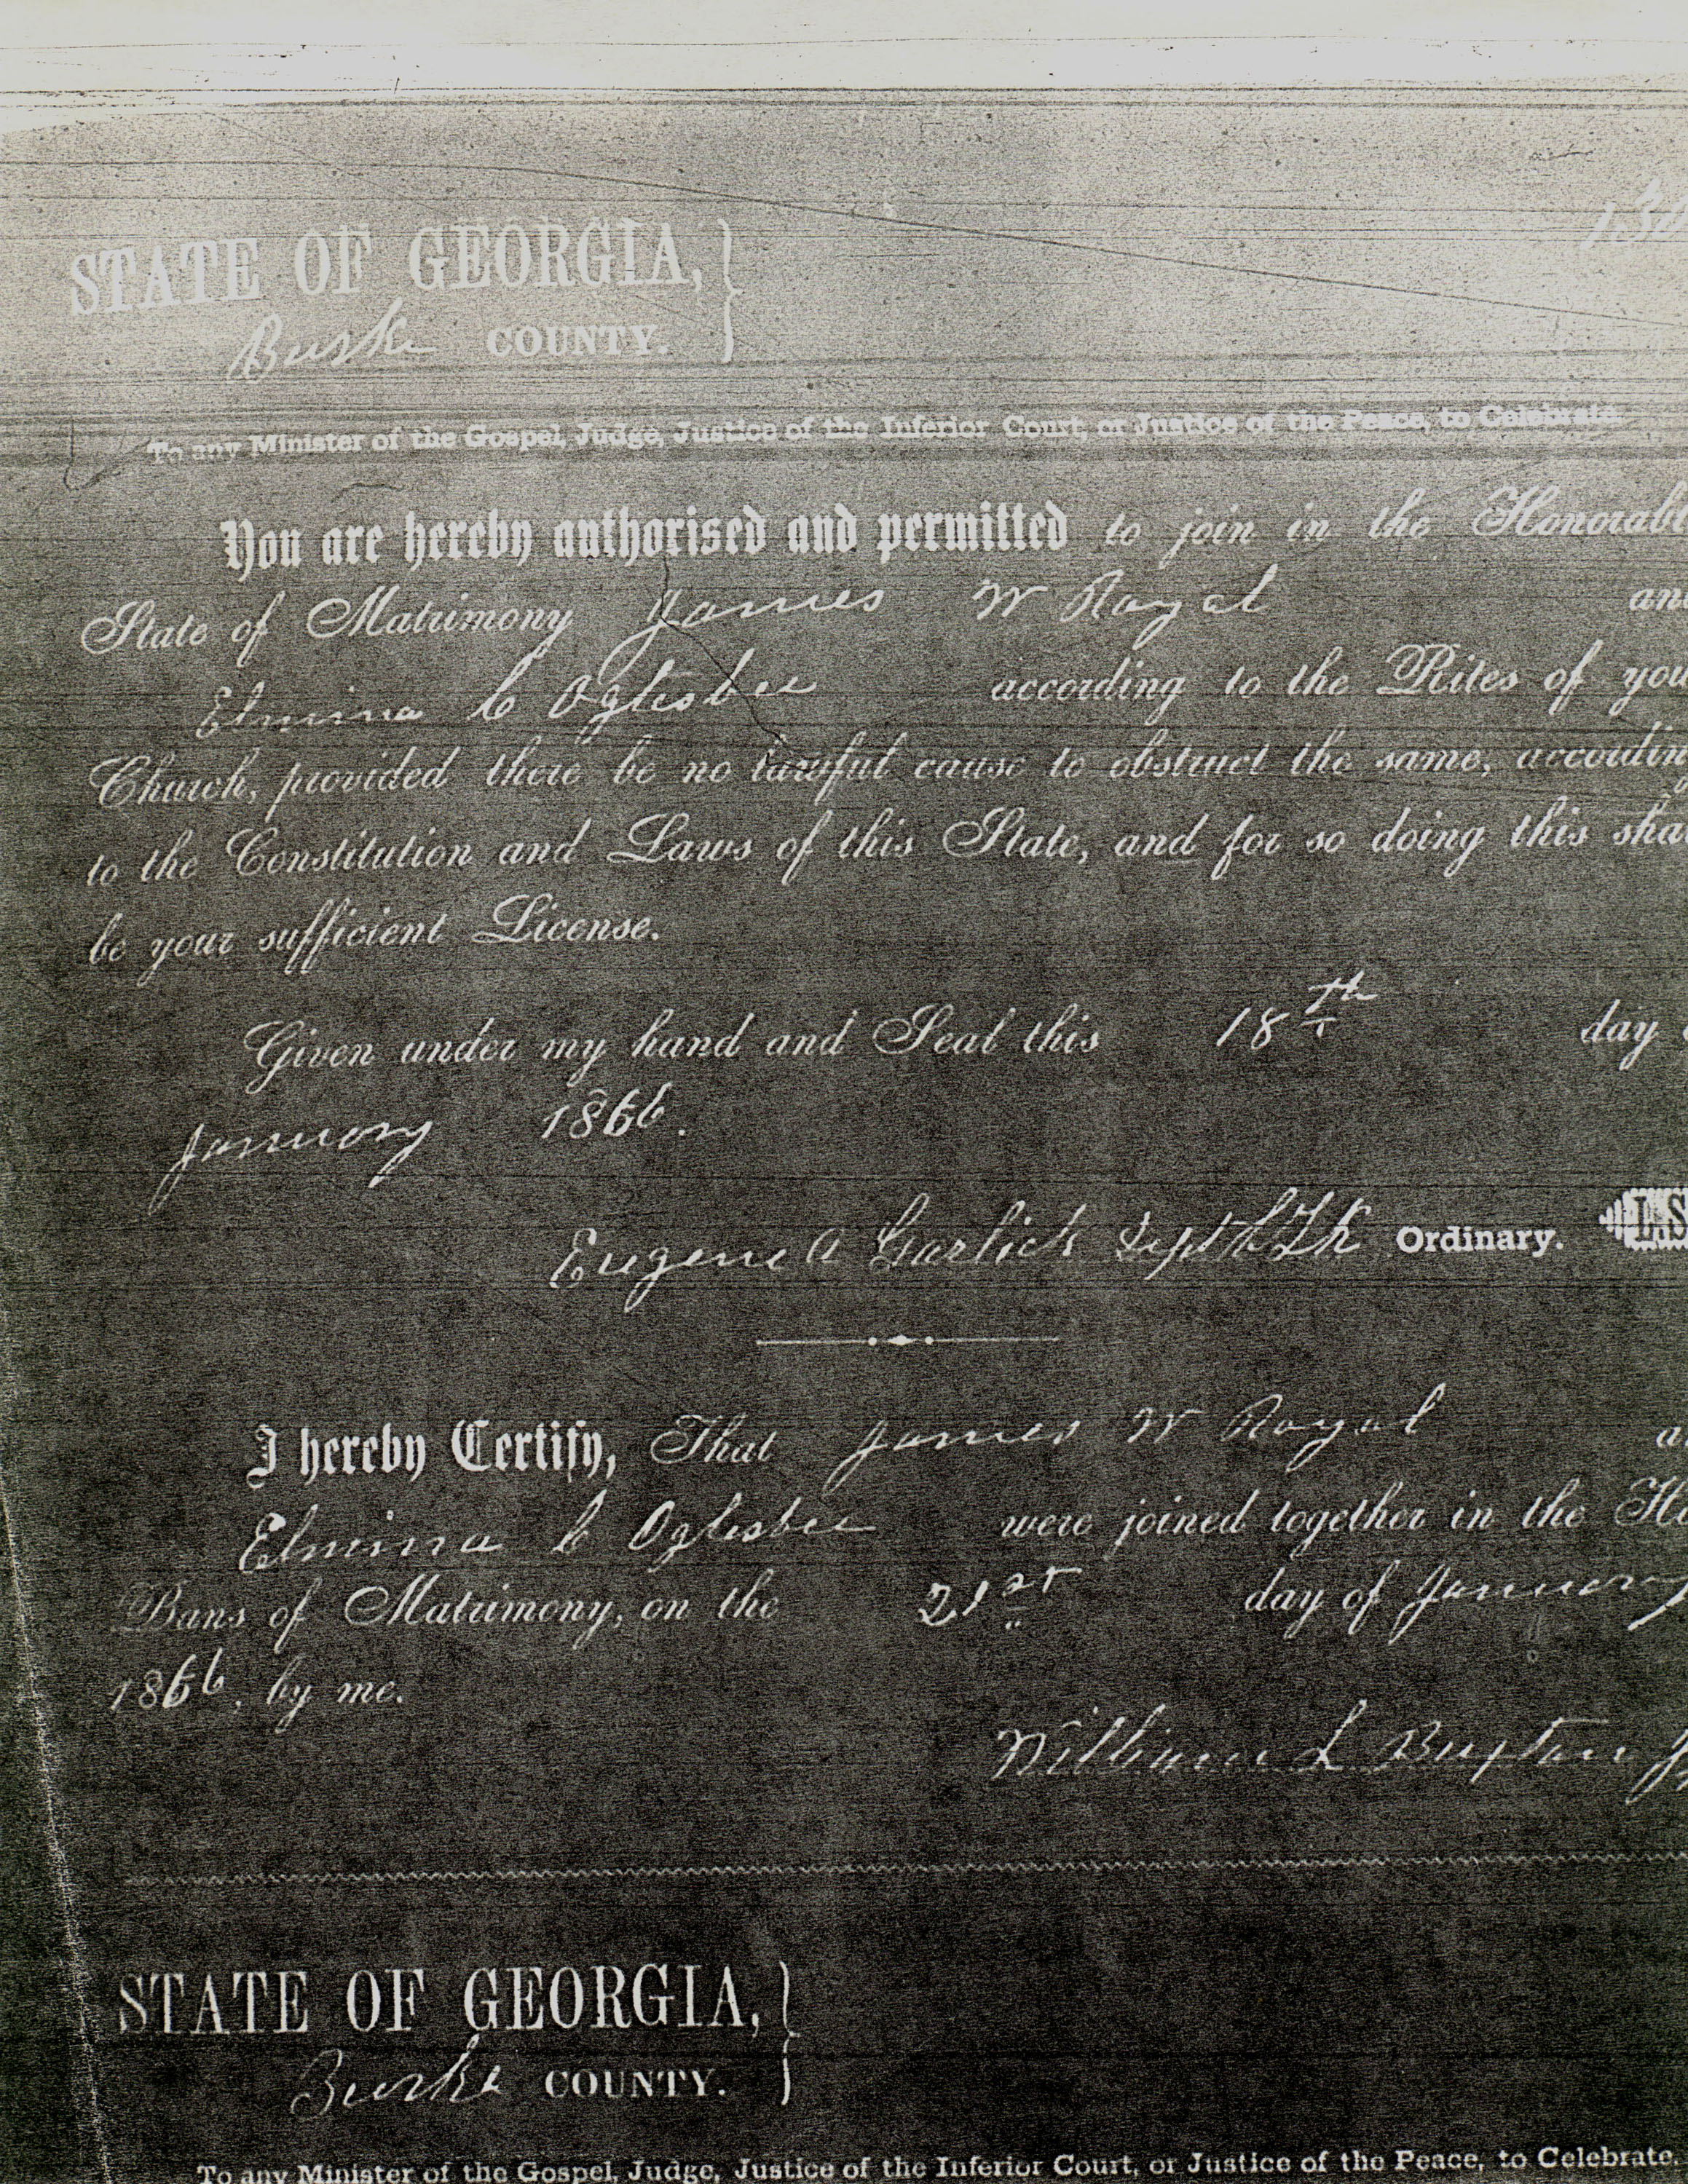 STATE OF GEORGIA,
Burke COUNTY.
To any Minister of the Gospel, Judge, Justice of the Inferior Court, or Justice of the Peace, to Celebrate.
You are hereby authorised and permitted to join in the Honorabl
State of Matrimony James W Royal an
Elmina C Oglesbee according to the Rites of you
Church, provided there be no lawful cause to obstruct the same, accordin
to the Constitution and Laws of this State, and for so doing this sha
be your sufficient License.
Given under my hand and Seal this 18th day
January 1866.
Eugene A Garlick Ordinary. L.S
I hereby Certify, That James W Royal a
Elmina C Oglesbee were joined together in the H
Bans of Matrimony, on the 21st day of January
1866, by me.
William L Buxton J
STATE OF GEORGIA,
Burke COUNTY.
To any Minister of the Gospel, Judge, Justice of the Inferior Court, or Justice of the Peace, to Celebrate.